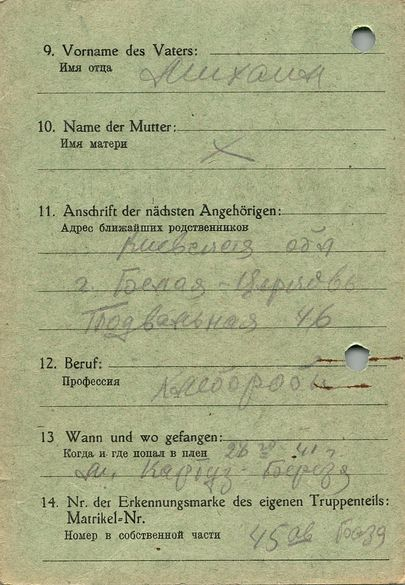 9. Vorname des Vaters:
Имя отца Михаил
10. Name der Mutter:
Имя матери X
11. Anschrift der nächsten Angehörigen:
Адрес ближайших родственников
Киевская обл
г. Белая-Церковь
Подвальная 46
12. Beruf:
Профессия Хлебороб
13 Wann und wo gefangen:
Когда и где попал в плен 41 г
м. Картуз-Береза
14. Nr. der Erkennungsmarke des eigenen Truppenteils:
Matrikel=Nr.
Номер в собственной части 45 ав База